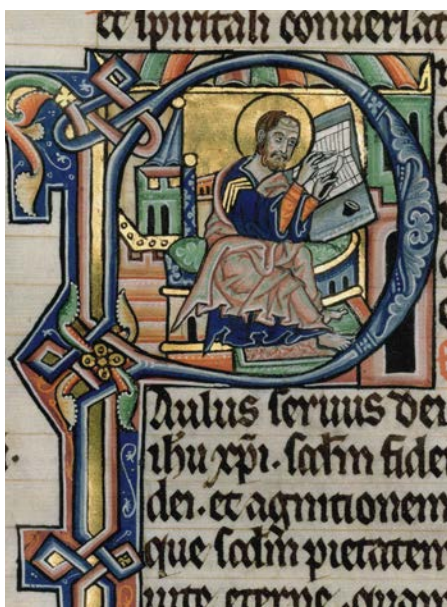 et spiritali conuersat
P
aulus seruus dei
ihu xpi. scdm fide
dei. et agnitionem
que scdm pietatem
uite eterne. quam